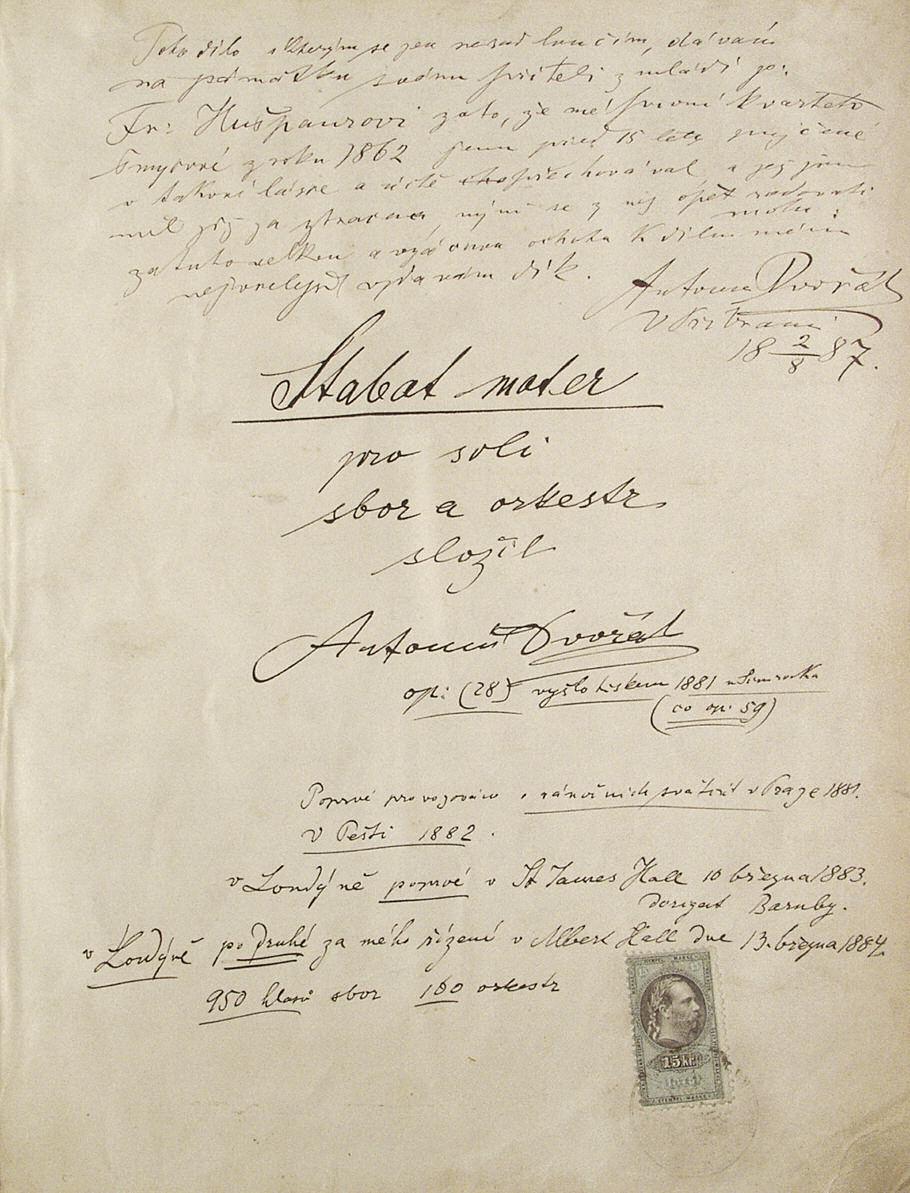 Toto dílo s kterým se jen nerad loučím, dávám
na památku svému příteli z mládí p:
Fr: Hušpaurovi zato, že mé první kvarteto
smyčcové z roku 1862 jemu před 15 léty půjčené
v takové lásce a úctě přechovával, a jej jsem
měl již za ztracena, nyní se z něj opět radovati mohu;
za tuto velkou a ochotu k dílu mému
nejvřelejší vzdávám dík.
Antonín Dvořák
V Příbrami
18 2/8 87.
Stabat mater
pro soli
sbor a orkestr
složil
Antonín Dvořák
op: (28) vyšlo tiskem 1881 u Simrocka
(co op: 59)
Poprvé provozováno o vánočních svátcích v Praze 1881.
V Pešti 1882.
v Londýně poprvé v St James Hall 10 března 1883.
Dirigent Barnby.
v Londýně po druhé za mého řízení v Albert Hall dne 13. března 1884.
950 hlasů sbor 160 orkestr
STEMPEL MARKE
15 KR.